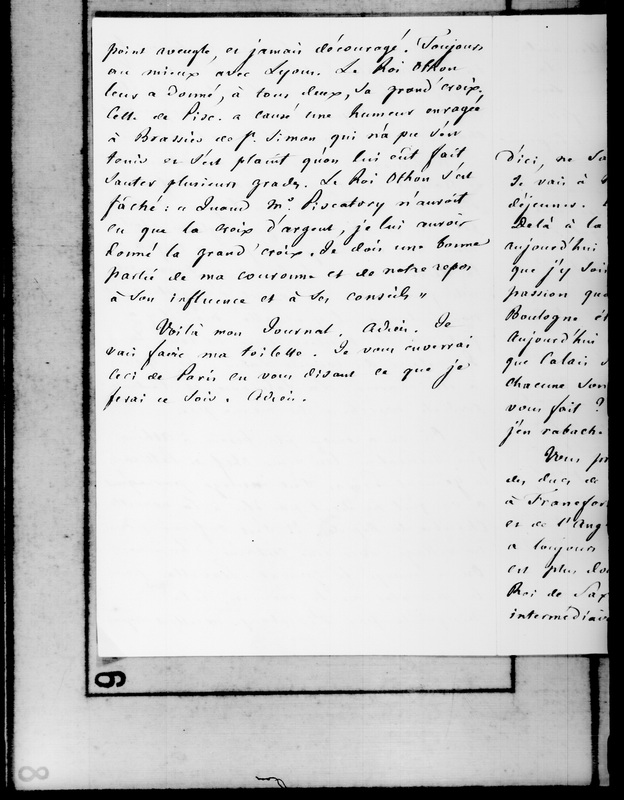 point aveugle, et jamais découragé. Toujours
au mieux avec Lyons. Le Roi Othon
leur a donné, à tous deux, sa grand'croix.
Celle de Pisc. a causé une humeur enragée
à Brassier de St. Simon qui n'a pu s'en
tenir et s'est plaint qu'on lui eût fait
sauter plusieurs grades. Le Roi Othon s'est
fâché : " Quand Mr. Piscatory n'auroit
eu que la croix d'argent, je lui aurois
donné la grand'croix. Je dois une bonne
partie de ma couronne et de notre repos
à son influence et à ses conseils "
Voilà mon Journal. Adieu. Je
vais faire ma toilette. Je vous enverrai
ceci de Paris en vous disant ce que je
ferai ce soir. Adieu.
d'ici, ne
Je vais à
déjeuner.
Delà à la
aujourd'hui
que j'y
passion
Boulogne
Aujourd'hui
que Calais
chacune
vous fait ?
j'en rabach
Vous
des ducs de
à Francfor
et de l'Ang
a toujours
est plus
Roi de Sax
intermédiair
6
8